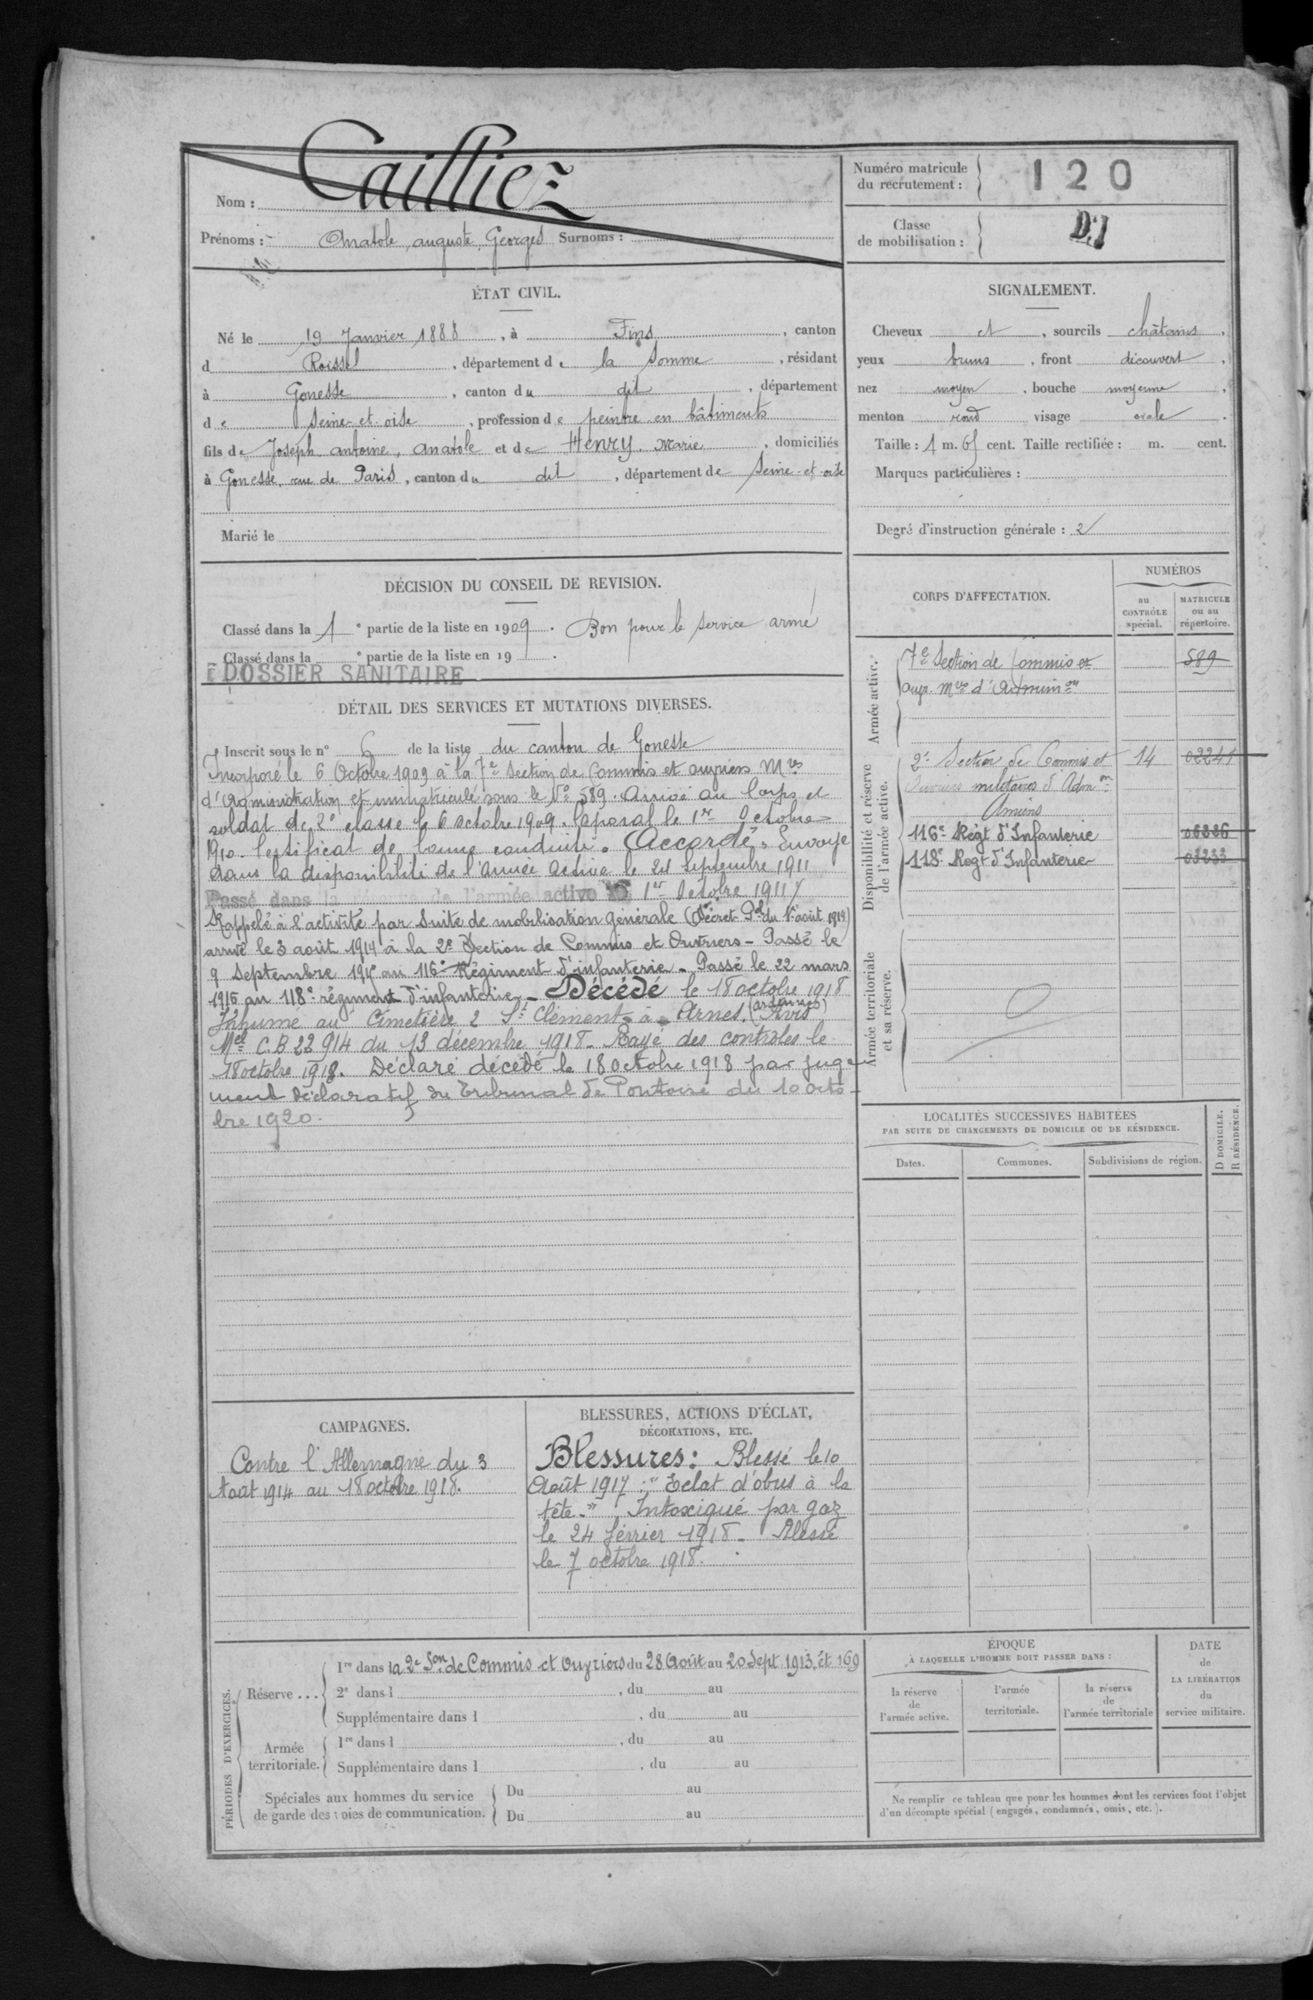 Nom : Cailliez
Prénoms : Anatole, auguste, Georges Surnoms :
Numéro matricule
du recrutement : 120
Classe
de mobilisation :
ÉTAT CIVIL.
Né le 19 Janvier 1888, à Fins, canton
d Roisel, département de la Somme, résidant
à Gonesse, canton du dit, département
de Seine et oise, profession de peintre en bâtiments
fils de Joseph antoine, anatole et de Henry, Marie, domiciliés
à Gonesse, rue de Paris, canton du dit, département de Seine-et oise
Marié le
SIGNALEMENT.
Cheveux et, sourcils châtains,
yeux bruns, front découvert,
nez moyen, bouche moyenne,
menton rond visage ovale.
Taille : 1 m. 65 cent. Taille rectifiée : m. cent.
Marques particulières :
Degré d'instruction générale : 2
DÉCISION DU CONSEIL DE REVISION.
Classé dans la 1e partie de la liste en 1909. Bon pour le service armé
Classé dans la e partie de la liste en 19 .
DOSSIER SANITAIRE
DÉTAIL DES SERVICES ET MUTATIONS DIVERSES.
Inscrit sous le n° 6 de la liste du canton de Gonesse
Incorporé le 6 Octobre 1909 à la 7e Section de Commis et ouvriers Mres
d'Administration et immatriculé sous le No 589. Arrivé au Corps et
soldat de 2e classe le 6 octobre 1909. Caporal le 1er Octobre
1910. Certificat de bonne conduite. Accordé. Envoyé
dans la disponibilité de l'Armée active le 24 Septembre 1911
Passé dans la réserve de l'armée active le 1er Octobre 1911
Rappelé à l'activité par suite de mobilisation générale (Décret Pel du 1er août 1914)
arrivé le 3 août 1914 à la 2e Section de Commis et Ouvriers - Passé le
9 Septembre 1915 au 116e Régiment d'infanterie - Passé le 22 mars
1916 au 118e régiment d'infanterie - Décédé le 18 octobre 1918
Inhumé au Cimetière 2 St Clément à Arnes (ardennes) Avis
Mel C.B 22914 du 13 décembre 1918. Rayé des contrôles le
18 octobre 1918. Déclaré décédé le 18 octobre 1918 par juge-
ment déclaratif du Tribunal de Pontoise du 10 octo-
bre 1920.
CORPS D'AFFECTATION.
NUMÉROS
au
CONTRÔLE
spécial.
MATRICULE
ou au
répertoire.
Armée active.
7e Section de Commis et 589
ouv. Mres d'Admin on
Disponibilité et réserve
de l'armée active.
2e Section de Commis et 14 02241
Ouvriers militaires d'Admon
Amiens
116e Régt d'Infanterie
118e Regt d'Infanterie
Armée territoriale
et sa réserve.
LOCALITÉS SUCCESSIVES HABITÉES
PAR SUITE DE CHANGEMENTS DE DOMICILE OU DE RÉSIDENCE.
Dates. Communes. Subdivisions de région.
D DOMICILE.
R RÉSIDENCE.
CAMPAGNES.
Contre l'Allemagne du 3
Août 1914 au 18 octobre 1918.
BLESSURES, ACTIONS D'ÉCLAT,
DÉCORATIONS, ETC.
Blessures : Blessé le 10
Août 1917 : "Eclat d'obus à la
tête - " Intoxiqué par gaz
le 24 février 1918 - Blessé
le 7 octobre 1918.
PÉRIODES D'EXERCICES.
Réserve ...
1re dans la 2e Son de Commis et Ouvriers du 28 Août au 20 Sept 1913. Et 169
2e dans l , du au
Supplémentaire dans l , du au
Armée
territoriale.
1re dans l , du au
Supplémentaire dans l , du au
Spéciales aux hommes du service
de garde des voies de communication.
Du au
Du au
ÉPOQUE
À LAQUELLE L'HOMME DOIT PASSER DANS :
la réserve
de
l'armée active.
l'armée
territoriale.
la réserve
de
l'armée territoriale
DATE
de
LA LIBÉRATION
du
service militaire.
Ne remplir ce tableau que pour les hommes dont les services font l'objet
d'un décompte spécial (engagés, condamnés, omis, etc.).